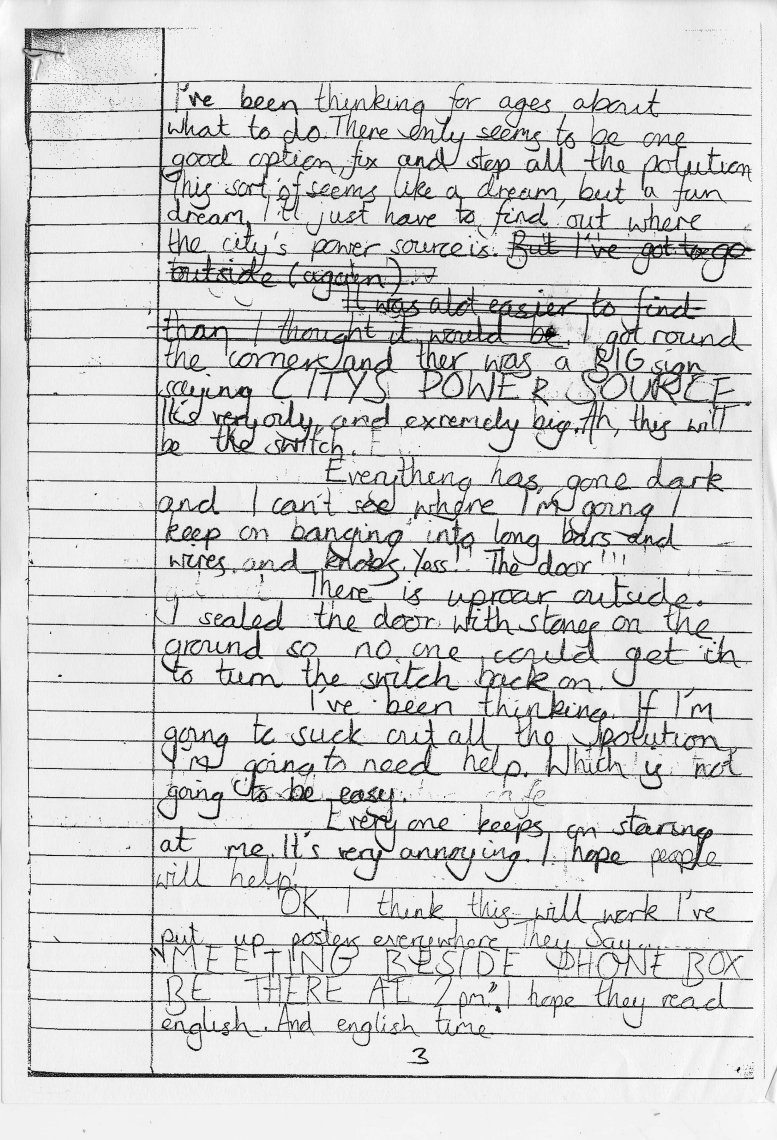 I've been thinking for ages about
what to do. There only seems to be one
good option, fix and stop all the polution
This sort of seems like a dream, but a fun
dream, I'll just have to find out where
the city's power source is. But I've got to go
outside (again).
It was alot easier to find
than I thought it would be. I got round
the corner and ther was a BIG sign
saying CITYS POWER SOURCE.
It's very oily, and exremely big. Ah, this will
be the switch.
Everything has gone dark
and I can't see where I'm going I
keep on banging into long bars and
wires and knobs. Yess! The door!!!
There is uproar outside.
I sealed the door with stones on the
ground so no one could get in
to turn the switch back on.
I've been thinking. If I'm
going to suck out all the polution,
I'm going to need help. Which is not
going to be easy.
Every one keeps on staring
at me. It's very annoying. I hope people
will help.
OK, I think this will work I've
put up posters everywhere They Say....
"MEETING BESIDE PHONE BOX
BE THERE AT 2pm". I hope they read
english. And english time.
3